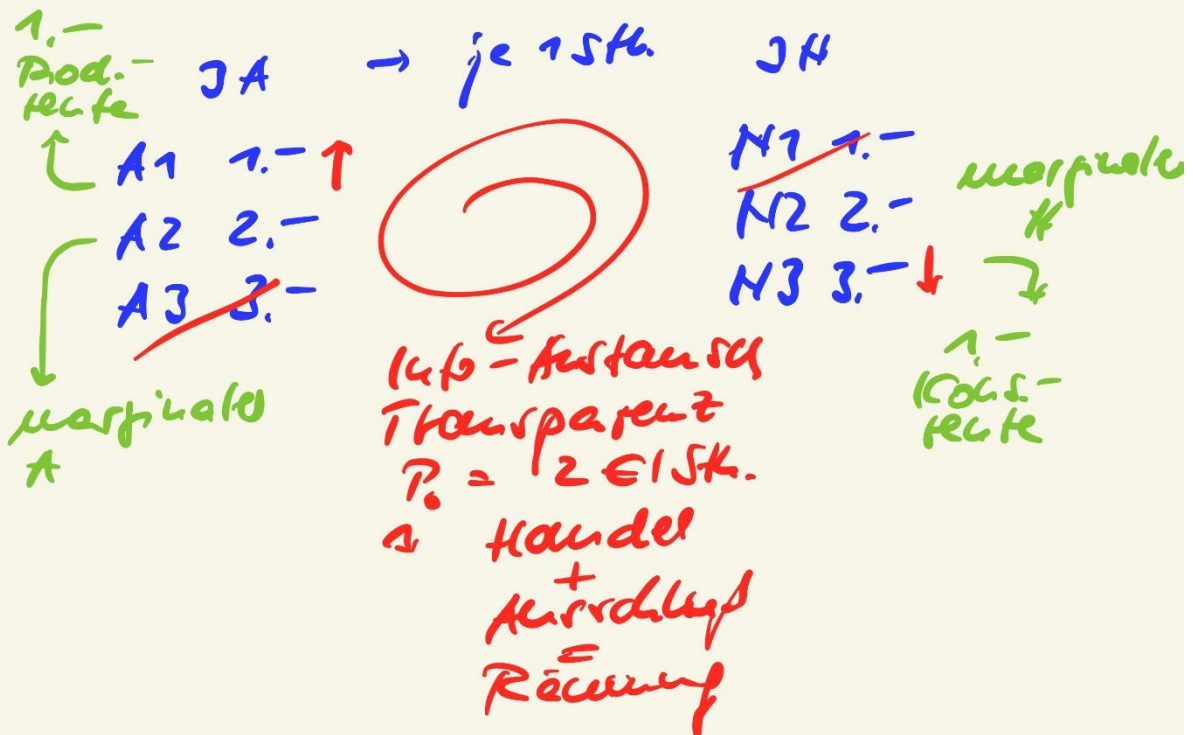 1.-
Prod.-
rente
3 A → je 1 Stk. 3 N
A1 1.- ↑
A2 2.-
A3 3.-
N1 1.-
N2 2.-
N3 3.- ↓
marginaler
N
1.-
Kons.-
rente
marginaler
A
Info-Austausch
Transparenz
P₀ = 2 €/Stk.
Handel
+
Ausschluß
=
Räumung